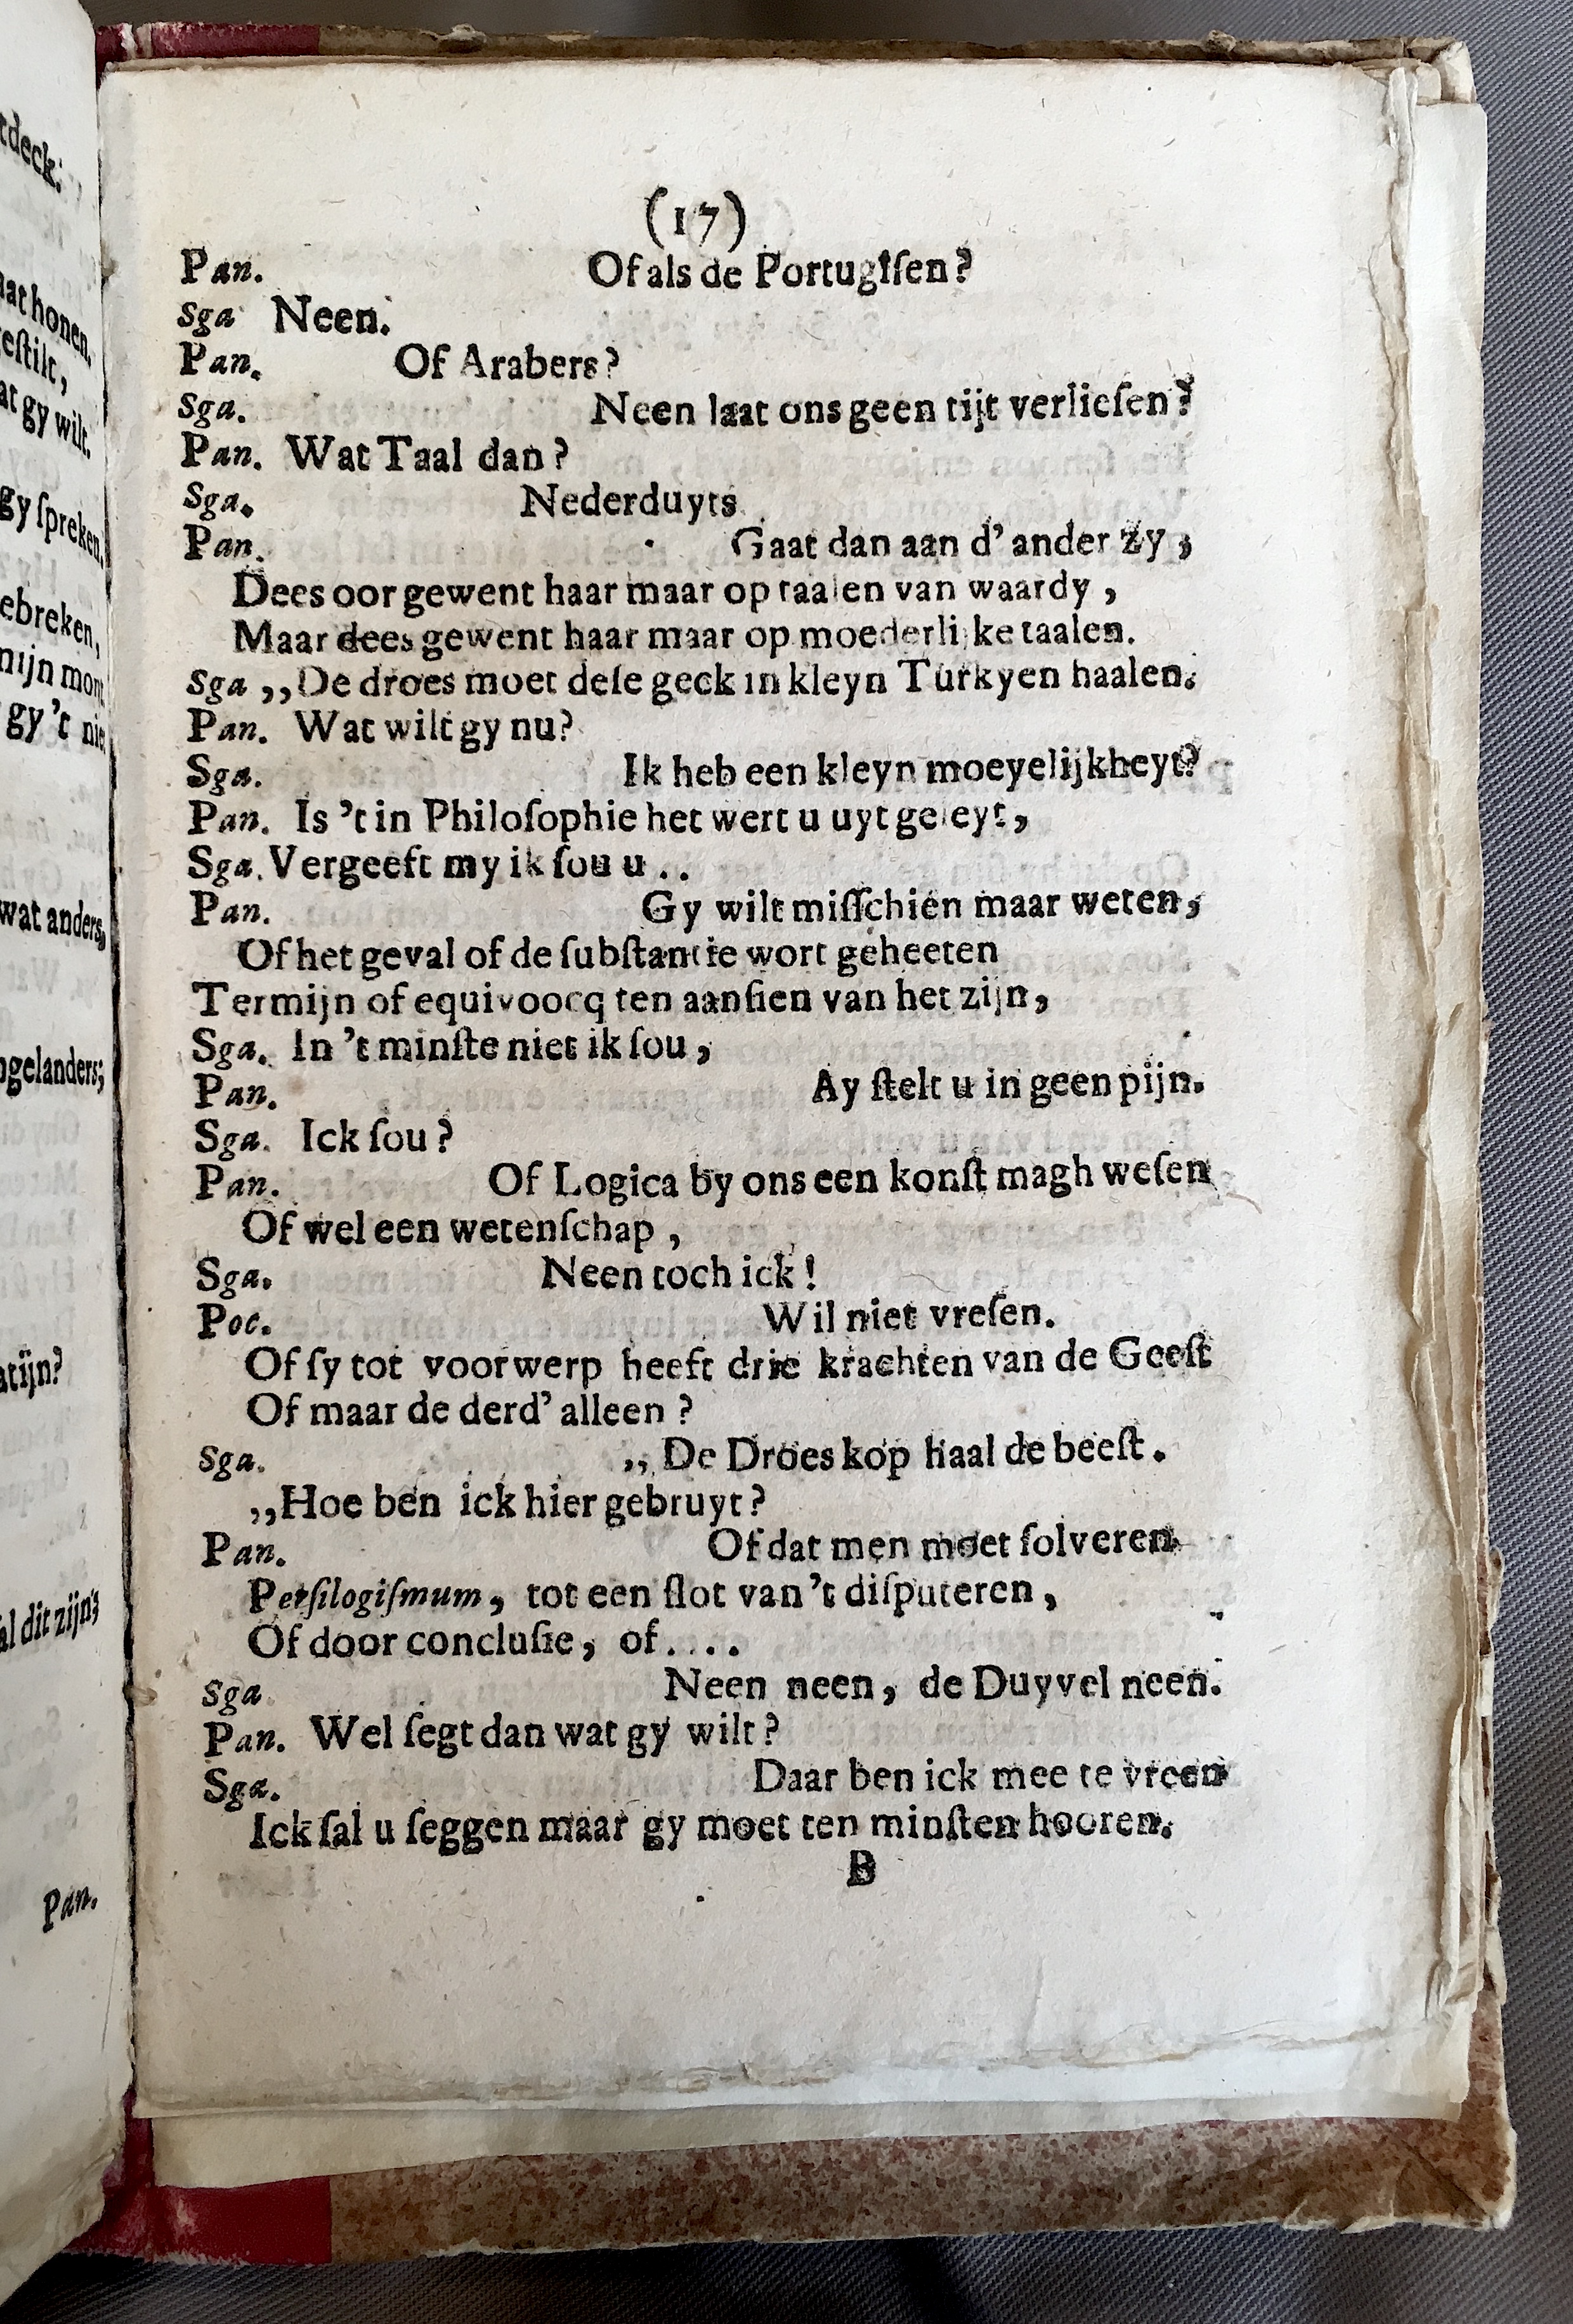 (17)
Pan. Of als de Portugisen?
Sga Neen.
Pan. Of Arabers?
Sga. Neen laat ons geen tijt verliesen?
Pan. Wat Taal dan?
Sga. Nederduyts
Pan. Gaat dan aan d' ander zy,
Dees oor gewent haar maar op taalen van waardy,
Maar dees gewent haar maar op moederlijke taalen.
Sga ,,De droes moet dese geck in kleyn Turkyen haalen.
Pan. Wat wilt gy nu?
Sga. Ik heb een kleyn moeyelijkheyt?
Pan. Is 't in Philosophie het wert u uyt geleyt,
Sga. Vergeeft my ik sou u ..
Pan. Gy wilt misschien maar weten,
Of het geval of de substantie wort geheeten
Termijn of equivoocq ten aansien van het zijn,
Sga. In 't minste niet ik sou,
Pan. Ay stelt u in geen pijn.
Sga. Ick sou?
Pan. Of Logica by ons een konst magh wesen
Of wel een wetenschap,
Sga. Neen toch ick!
Poc. Wil niet vresen.
Of sy tot voorwerp heeft drie krachten van de Geest
Of maar de derd' alleen?
Sga. ,, De Droes kop haal de beest.
,,Hoe ben ick hier gebruyt?
Pan. Of dat men moet solveren
Persilogismum, tot een slot van 't disputeren,
Of door conclusie, of....
Sga Neen neen, de Duyvel neen.
Pan. Wel segt dan wat gy wilt?
Sga. Daar ben ick mee te vreen
Ick sal u seggen maar gy moet ten minsten hooren.
B